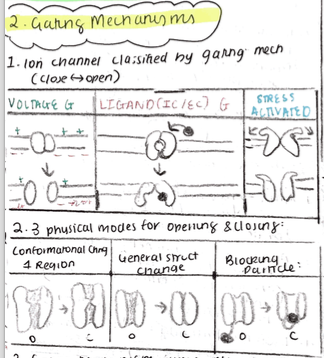 2. Gating Mechanisms
1. Ion channel classified by gating mech
(close ↔ open)
VOLTAGE G
LIGAND (IC/EC) G
STRESS
ACTIVATED
2. 3 physical modes for opening & closing:
Conformational Chng
1 Region
General struct
change
Blocking
particle:
O C O C O C